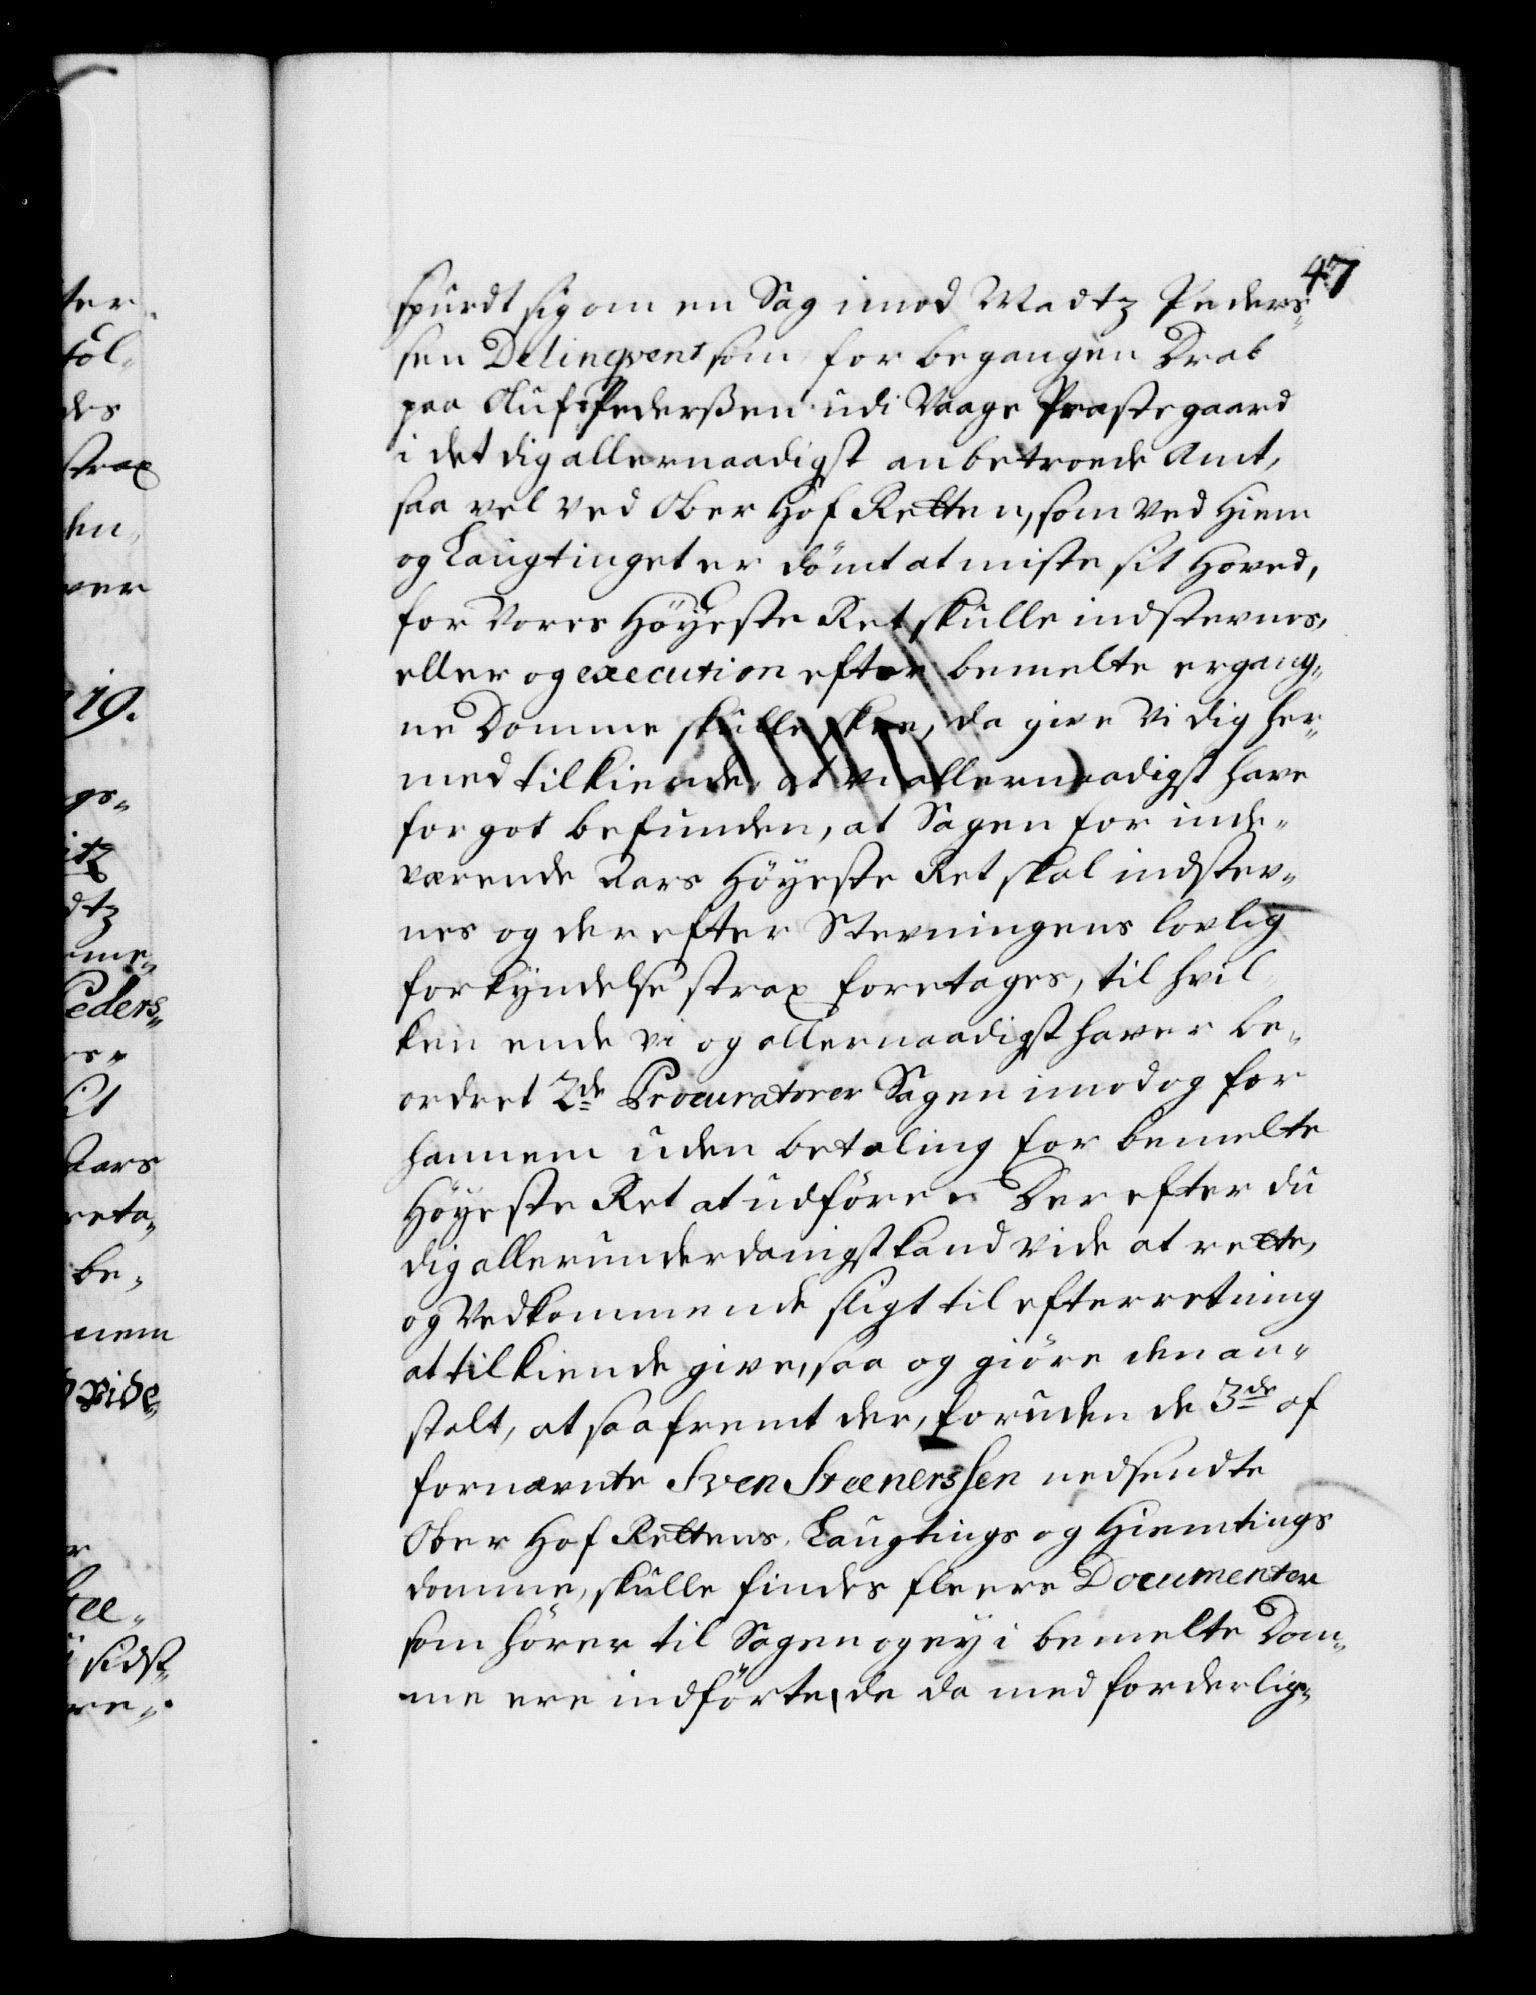 47
spurdt sig om en Sag imod Madtz Peders-
sen Delinqvent som for begangen Drab
paa Oluf Pederssen udi Vaage Præstegaard
i det dig allernaadigst anbetroede Amt,
saa vel ved Ober Hof Retten, som ved Hiem
og Laugtinget er dömt at miste sit Hoved,
for Vores Höyeste Ret skulle indstevnes,
eller og execution efter bemelte ergang-
ne Domme skulle skee, da give Vi dig her-
med tilkiende, at vi allernaadigst have
for got befunden, at Sagen for inde-
værende Aars Höyeste Ret skal indstev-
nes og der efter Stevningens lovlig
forkyndelse strax foretages, til hvil-
ken ende vi og allernaadigst haver be-
ordret 2de Procuratorer Sagen imod og for
hannem uden betaling for bemelte
Höyeste Ret at udföre. Der efter du
dig allerunderdanigst kand vide at rette,
og Vedkommende sligt til efterretning
at tilkiende give, saa og giöre den an-
stalt, at saafremt der, foruden de 3de af
fornævnte Sven Steenerssen nedsendte
Ober Hof Rettens, Laugtings og Hiemtings
domme, skulle findes fleere Documenter
som hörer til Sagen og ey i bemelte Dom-
me ere indförte, de da med forderlig-
ter
föl-
des
strax
hen,
ver
19.
gs-
itz
dtz
Peders-
Aars
reta-
be-
nem
vide
sidst